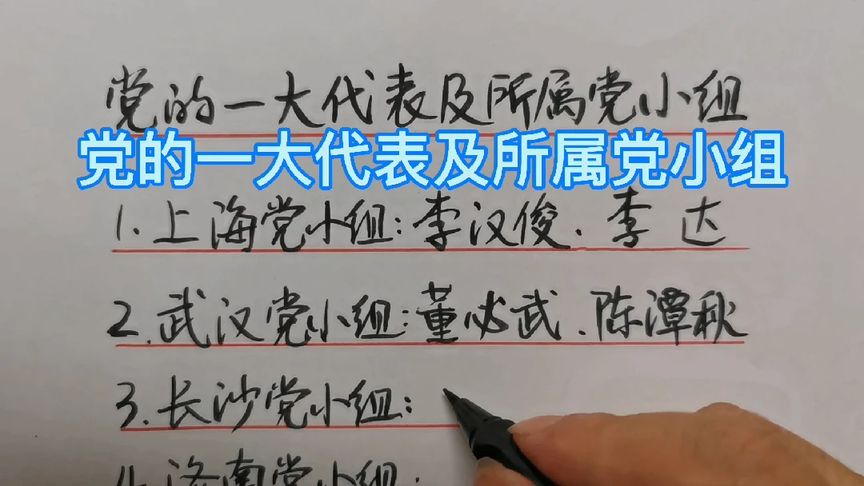 党的一大代表及所属党小组
党的一大代表及所属党小组
1.上海党小组:李汉俊.李达
2.武汉党小组:董必武.陈潭秋
3.长沙党小组:
4.济南党小组: